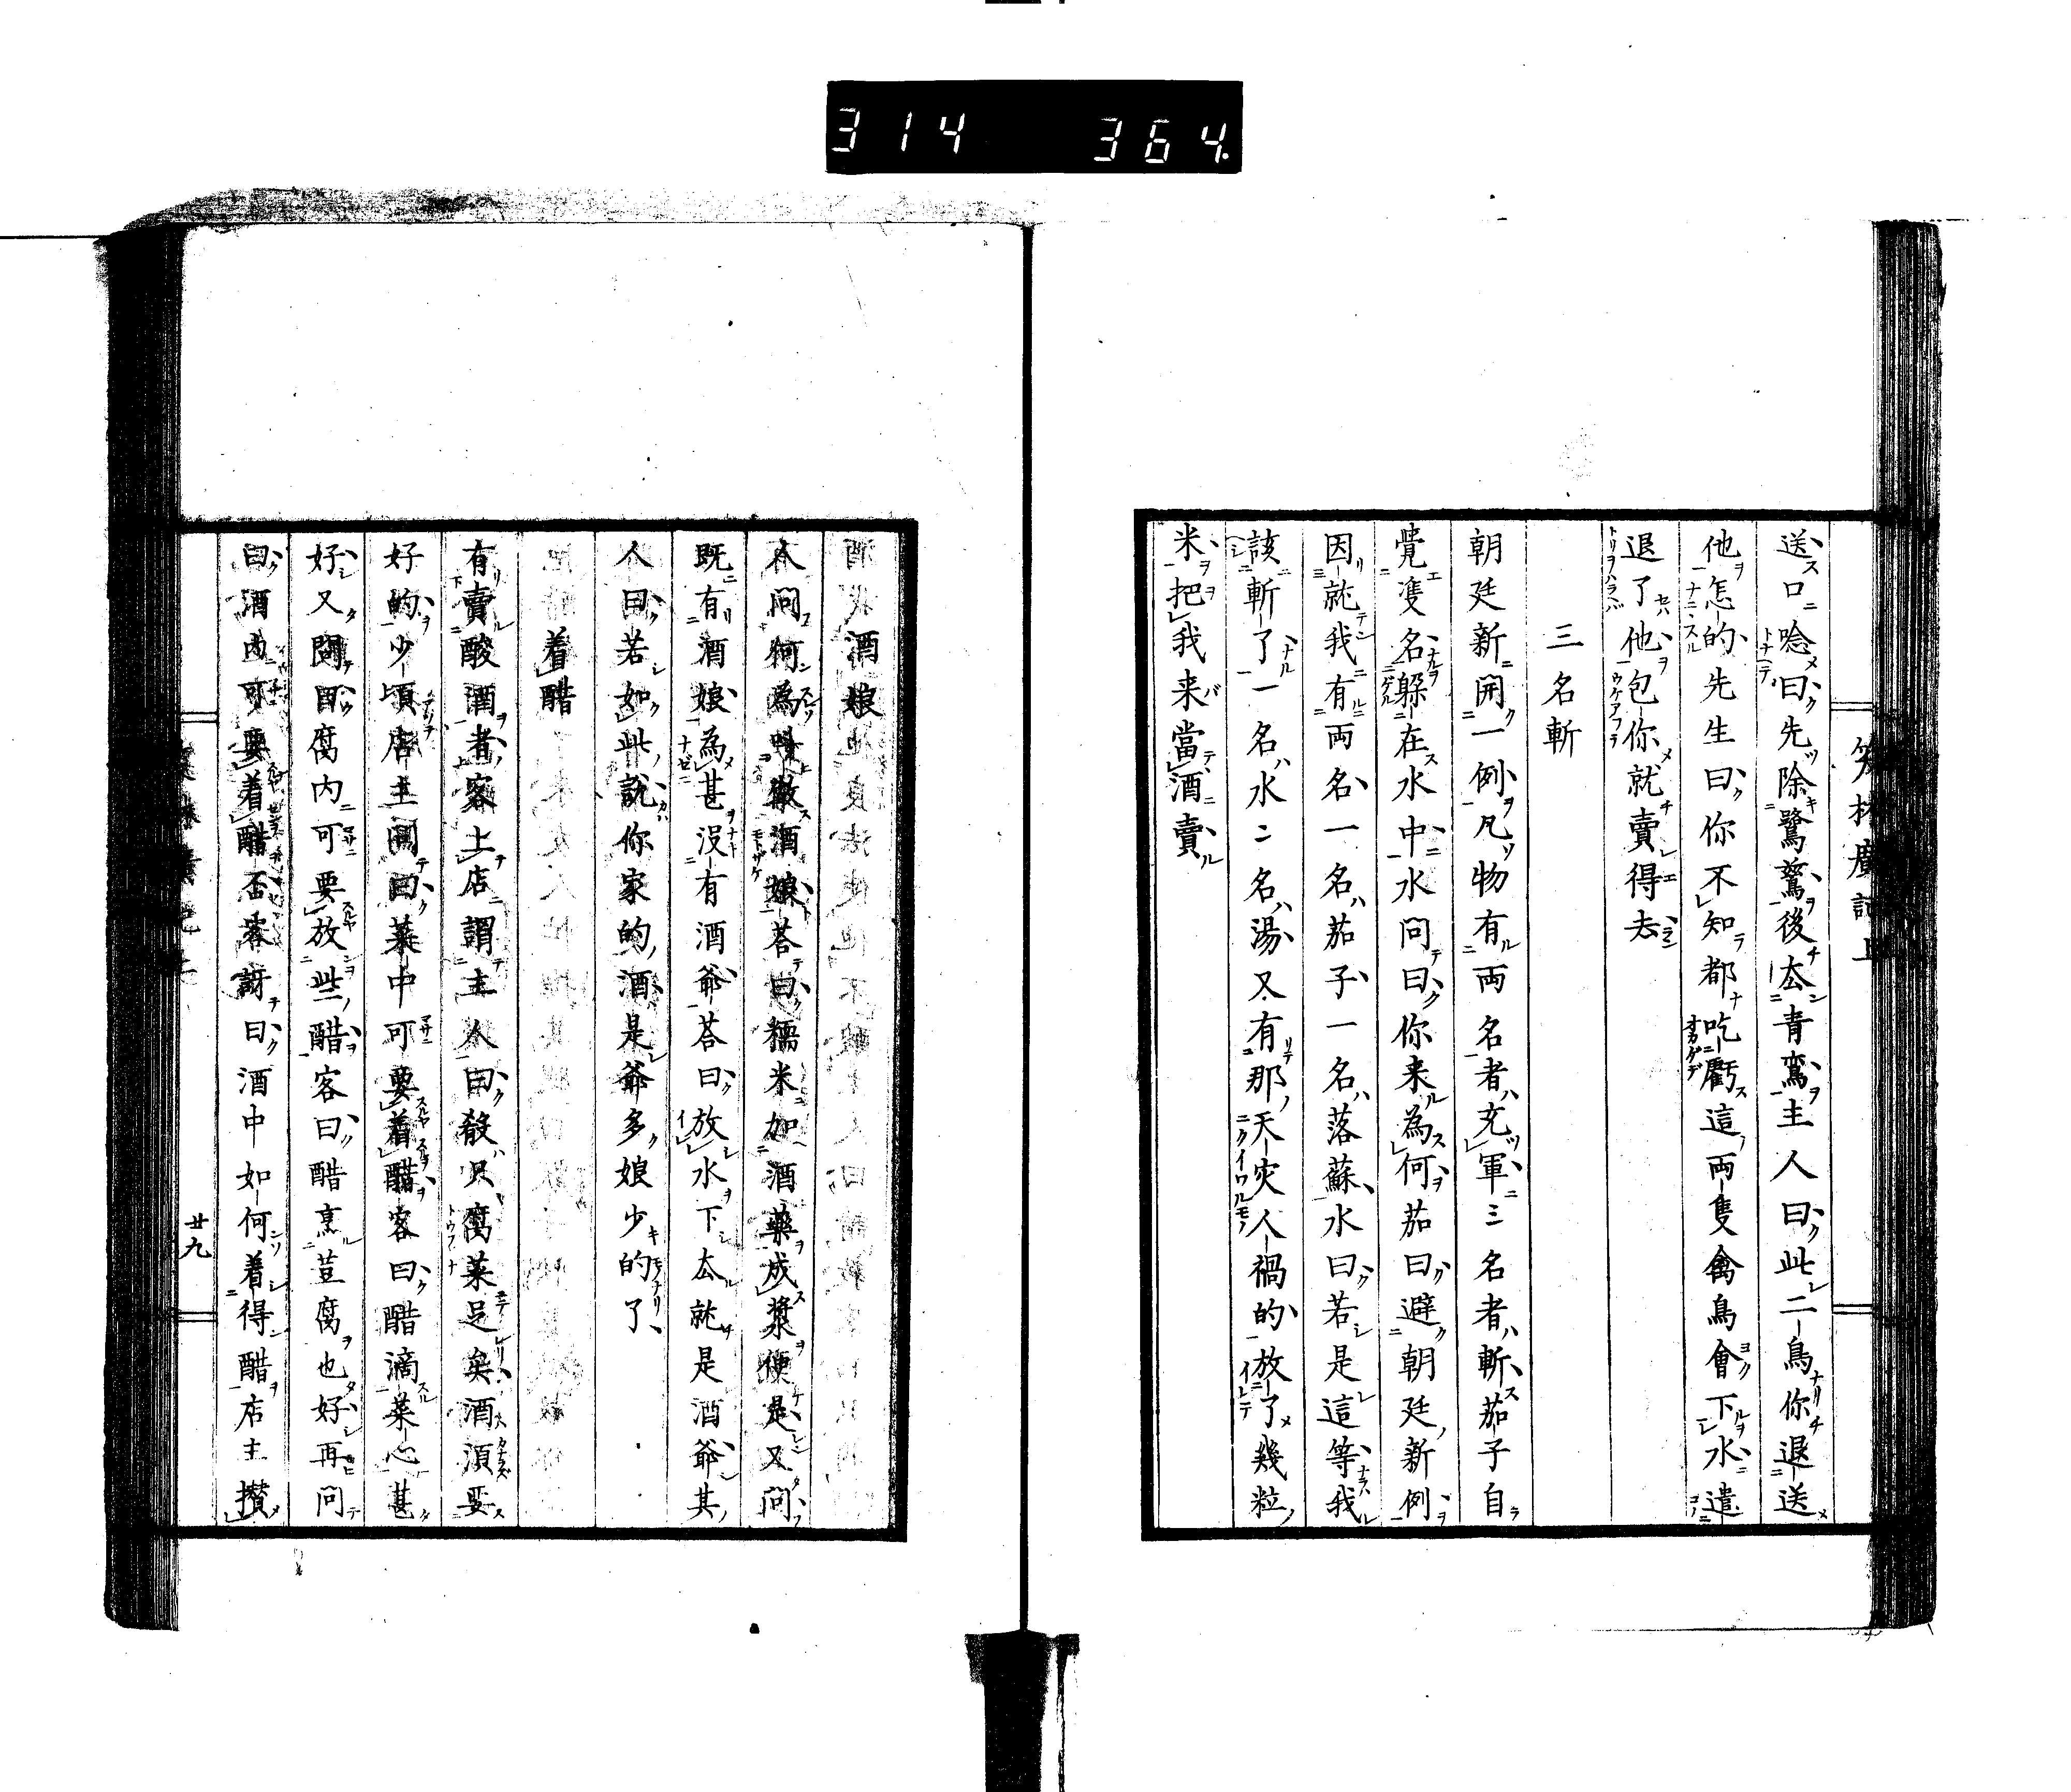 314 364.
送口唸曰先除鷺鶿後厺青鸞主人曰此二鳥你退送
他怎的先生曰你不知都吃虧這両隻禽鳥會下水遣
退了他包你就賣得去
三名斬
朝廷新開一例凡物有両名者充軍三名者斬茄子自
覺隻名躲在水中水問曰你来為何茄曰避朝廷新例
因就我有両名一名茄子一名落蘇水曰若是這等我
該斬了一名水二名湯又有那天灾人禍的放了幾粒
米把我来當酒賣
酒娘
人問何為叫做酒娘荅曰糯米加酒藥成漿便是又問
既有酒娘為甚沒有酒爺荅曰放水下厺就是酒爺其
人曰若如此說你家的酒是爺多娘少的了
着醋
有賣酸酒者客上店謂主人曰殽只腐菜足矣酒須要
好的少頃店主問曰菜中可要着醋客曰醋滴菜心甚
好又問曰腐内可要放些醋客曰醋烹荳腐也好再問
曰酒内可要着醋否客訝曰酒中如何着得醋店主攅
廿九